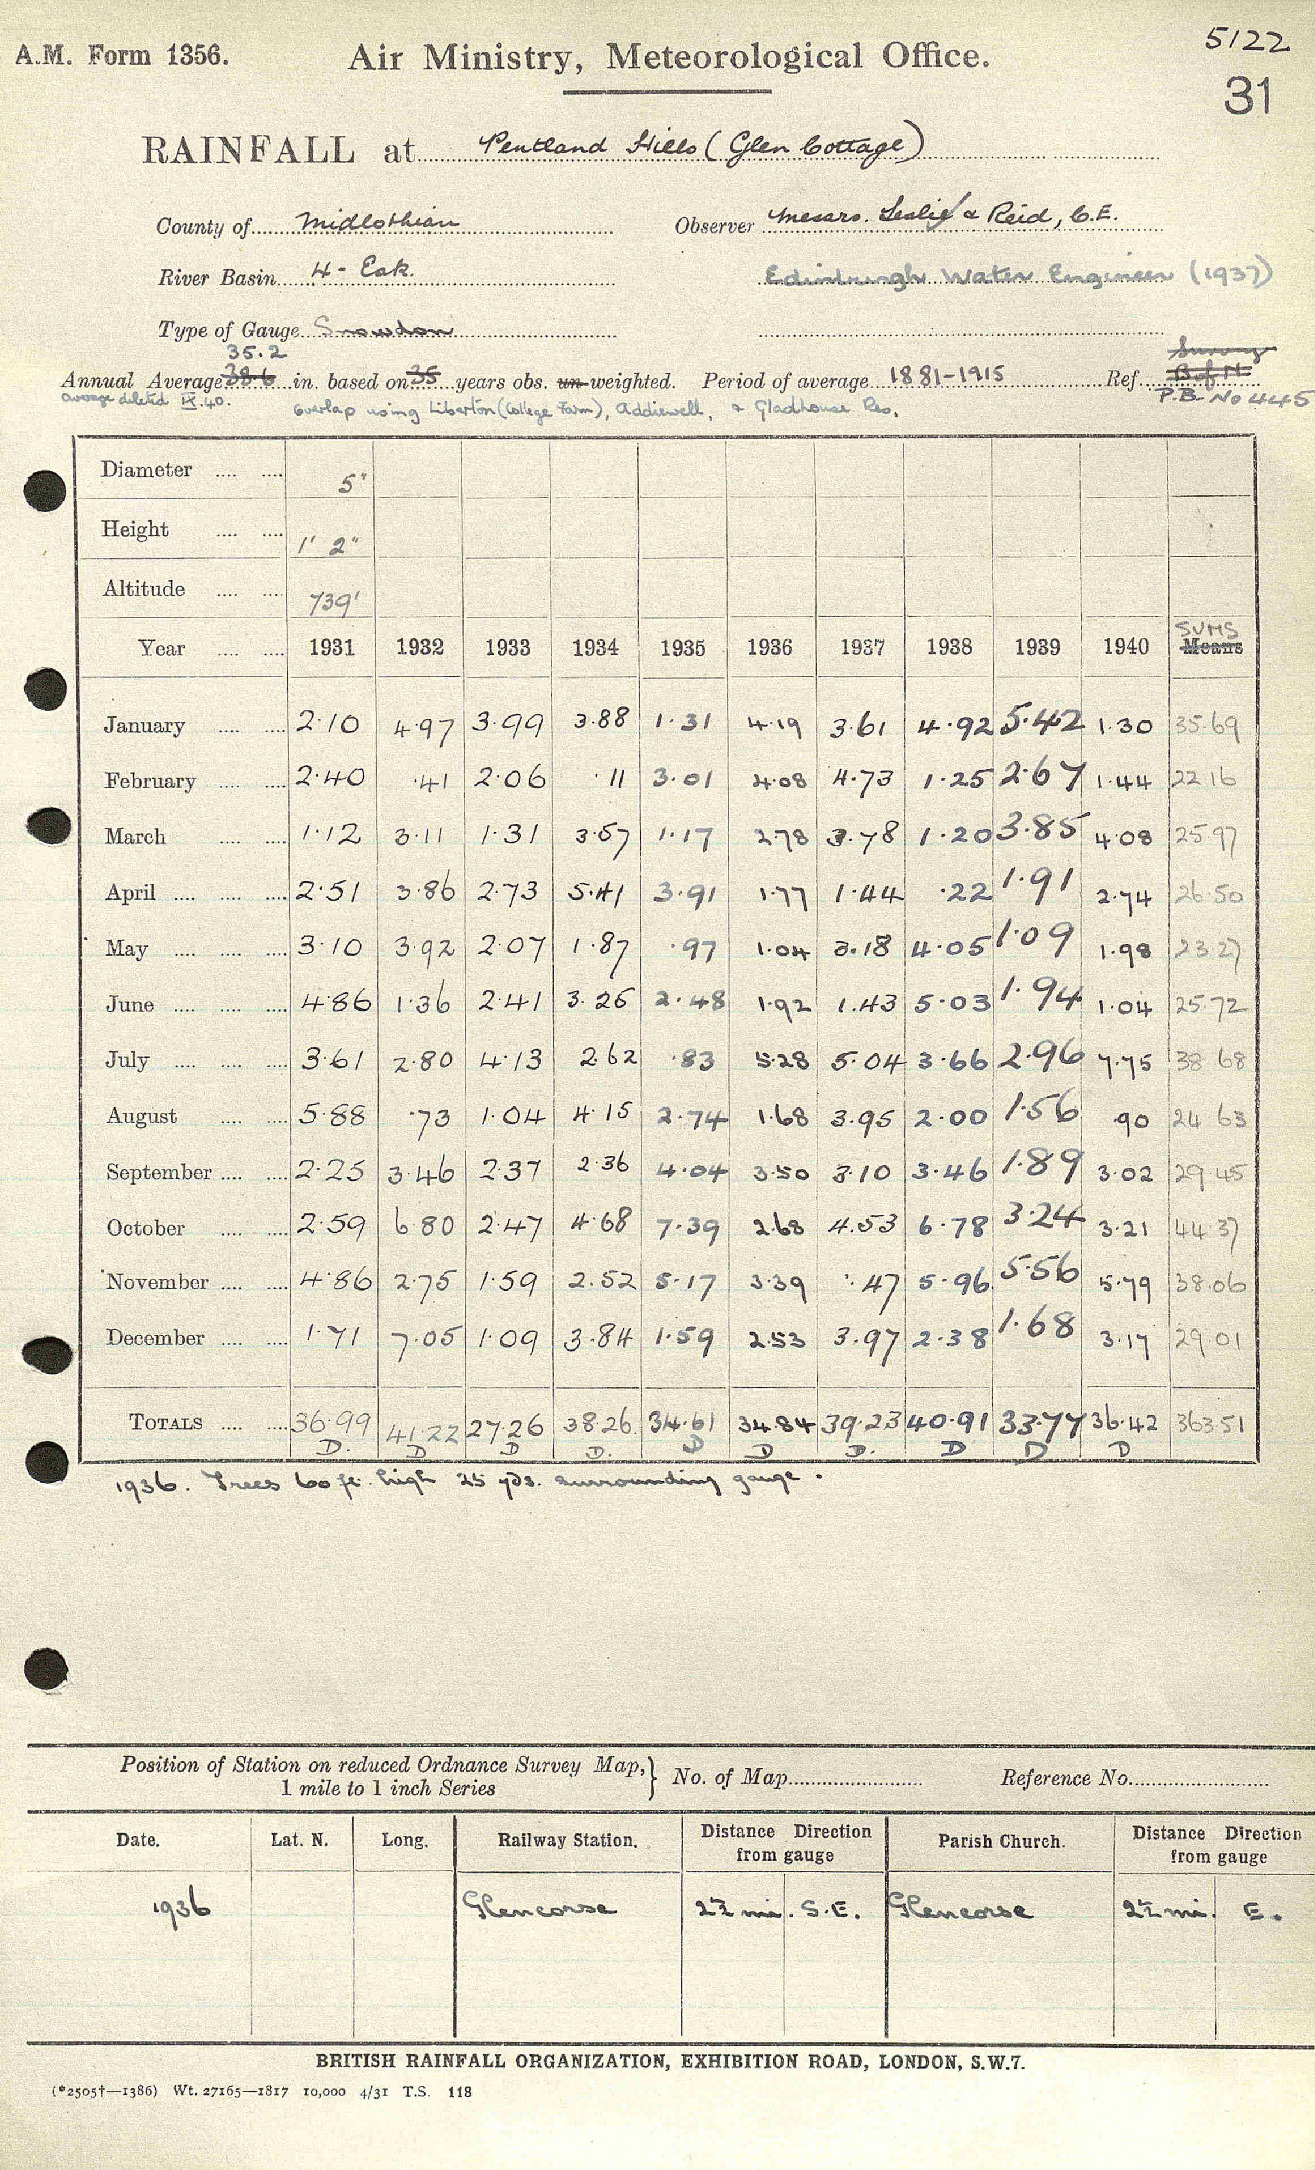 5122
A.M. Form 1356. Air Ministry, Meteorological Office.
31
RAINFALL at Pentland Hills (Glen Cottage)
County of Midlothian Observer Messrs. Leslie & Reid, C.E.
River Basin 4 - Esk. Edinburgh Water Engineer (1937)
Type of Gauge Snowdon
35.2
Annual Average 38.6 in. based on 35 years obs. un-weighted. Period of average 1881-1915 Ref. Survey B of N
average deleted IX.40. Overlap using Liberton (College Farm), Addiewell, & Gladhouse Res. P.B. No 445
Diameter 5"
Height 1' 2"
Altitude 739'
SUMS
Year 1931 1932 1933 1934 1935 1936 1937 1938 1939 1940 Means
January 2.10 4.97 3.99 3.88 1.31 4.19 3.61 4.92 5.42 1.30 35.69
February 2.40 .41 2.06 .11 3.01 4.08 4.73 1.25 2.67 1.44 22 16
March 1.12 3.11 1.31 3.57 1.17 2.78 3.78 1.20 3.85 4.08 25.97
April 2.51 3.86 2.73 5.41 3.91 1.77 1.44 .22 1.91 2.74 26.50
May 3.10 3.92 2.07 1.87 .97 1.04 3.18 4.05 1.09 1.98 23.27
June 4.86 1.36 2.41 3.25 2.48 1.92 1.43 5.03 1.94 1.04 25.72
July 3.61 2.80 4.13 2.62 .83 5.28 5.04 3.66 2.96 7.75 38 68
August 5.88 .73 1.04 4.15 2.74 1.68 3.95 2.00 1.56 .90 24 63
September 2.25 3.46 2.37 2.36 4.04 3.50 3.10 3.46 1.89 3.02 29.45
October 2.59 6.80 2.47 4.68 7.39 2.68 4.53 6.78 3.24 3.21 44 37
November 4.86 2.75 1.59 2.52 5.17 3.39 .47 5.96 5.56 5.79 38.06
December 1.71 7.05 1.09 3.84 1.59 2.53 3.97 2.38 1.68 3.17 29.01
TOTALS 36.99 41.22 27.26 38.26 34.61 34.84 39.23 40.91 33.77 36.42 363.51
D. D D D. D D D. D D D
1936. Trees 60 ft. high 25 yds. surrounding gauge.
Position of Station on reduced Ordnance Survey Map, 1 mile to 1 inch Series } No. of Map Reference No.
Date. Lat. N. Long. Railway Station. Distance Direction from gauge Parish Church. Distance Direction from gauge
1936 Glencorse 2½ mi. S.E. Glencorse 2½ mi. E.
BRITISH RAINFALL ORGANIZATION, EXHIBITION ROAD, LONDON, S.W.7.
(*2505†—1386) Wt. 27165—1817 10,000 4/31 T.S. 118